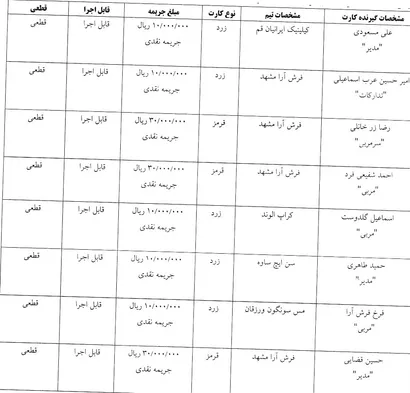 مشخصات گیرنده کارت	مشخصات تیم	نوع کارت	مبلغ جریمه	قابل اجرا	قطعی
علی مسعودی "مدیر"	کیلینیک ایرانیان قم	زرد	۱۰/۰۰۰/۰۰۰ ریال جریمه نقدی	قابل اجرا	قطعی
امیر حسین عرب اسماعیلی "تدارکات"	فرش آرا مشهد	زرد	۱۰/۰۰۰/۰۰۰ ریال جریمه نقدی	قابل اجرا	قطعی
رضا زر خانلی "سرمربی"	فرش آرا مشهد	قرمز	۳۰/۰۰۰/۰۰۰ ریال جریمه نقدی	قابل اجرا	قطعی
احمد شفیعی فرد "مربی"	فرش آرا مشهد	قرمز	۳۰/۰۰۰/۰۰۰ ریال جریمه نقدی	قابل اجرا	قطعی
اسماعیل گلدوست "مربی"	کراپ الوند	زرد	۱۰/۰۰۰/۰۰۰ ریال جریمه نقدی	قابل اجرا	قطعی
حمید طاهری "مدیر"	سن ایچ ساوه	زرد	۱۰/۰۰۰/۰۰۰ ریال جریمه نقدی	قابل اجرا	قطعی
فرخ فرش آرا "مربی"	مس سونگون ورزقان	زرد	۱۰/۰۰۰/۰۰۰ ریال جریمه نقدی	قابل اجرا	قطعی
حسین قضایی "مدیر"	فرش آرا مشهد	قرمز	۳۰/۰۰۰/۰۰۰ ریال جریمه نقدی	قابل اجرا	قطعی